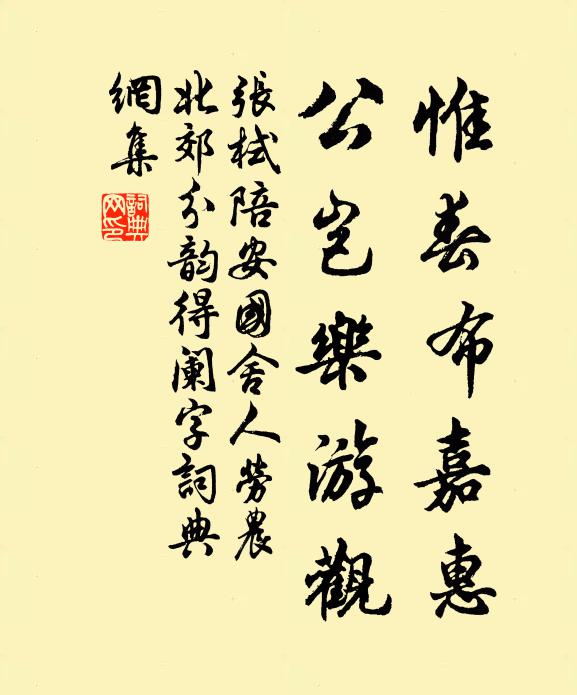 惟春布嘉惠
公岂樂游觀
張栻陪安國舍人勞農
北郊分韵得阑字詞典
網集
詞典
网印